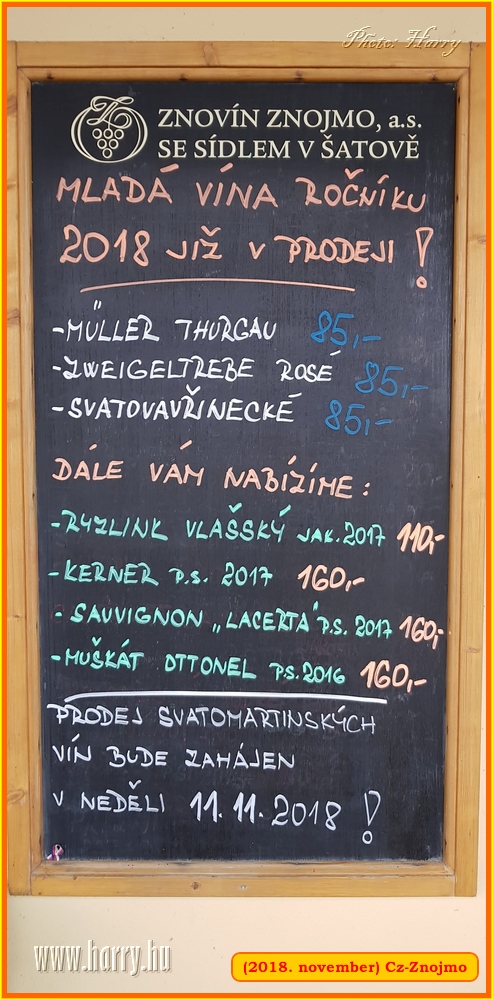 Photo: Harry
ZNOVÍN ZNOJMO, a.s.
SE SÍDLEM V ŠATOVĚ
MLADÁ VÍNA ROČNÍKU
2018 JIŽ V PRODEJI !
-MÜLLER THURGAU 85,-
-ZWEIGELTREBE ROSÉ 85,-
-SVATOVAVŘINECKÉ 85,-
DÁLE VÁM NABÍZÍME:
-RYZLINK VLAŠSKÝ JAK.2017 110,-
-KERNER P.S. 2017 160,-
- SAUVIGNON „LACERTA" P.S. 2017 160,-
-MUŠKÁT OTTONEL P.S.2016 160,-
PRODEJ SVATOMARTINSKÝCH
VÍN BUDE ZAHÁJEN
V NEDĚLI 11.11.2018 !
www.harry.hu
(2018. november) Cz-Znojmo